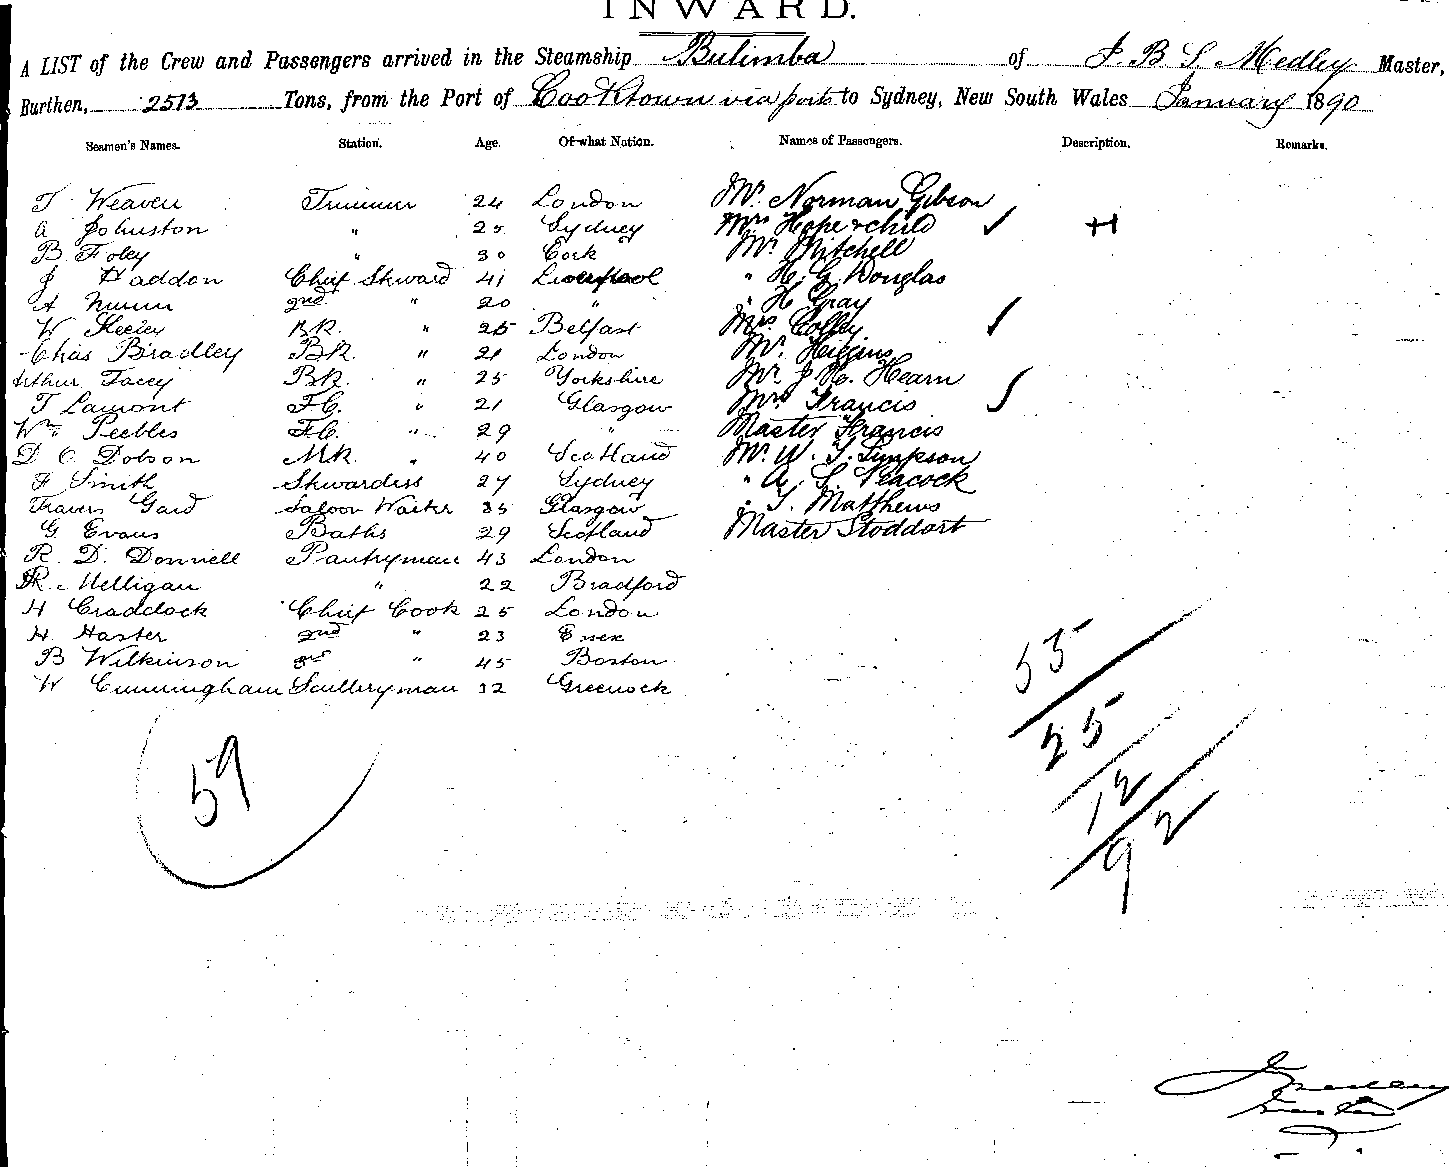 INWARD.
A LIST of the Crew and Passengers arrived in the Steamship Bulimba of J. B. S. Medley Master,
Burthen, 2513 Tons, from the Port of Cooktown via ports to Sydney, New South Wales January 1890
Seamen's Names. Station. Age. Of what Nation. Names of Passengers. Description. Remarks.
T Weaven Trimmer 24 London Mr. Norman Gibson
A Johnston " 25 Sydney Mrs Hope & child ✓ H
B Foley " 30 Cork Mr Mitchell
J Haddon Chief Steward 41 Liverpool " H. G. Douglas
A Nunn 2nd " 20 " " H Gray
W Skeley BR. " 25 Belfast Mrs Colley ✓
Chas Bradley BR. " 21 London Mr. Higgins
Arthur Facey BR. " 25 Yorkshire Mr J H. Hearn
T Lamont F.C. " 21 Glasgow Mrs Francis ✓
Wm Peebles F.C. " 29 " Master Francis
D C Dobson M.R. " 40 Scotland Mr. W. T. Simpson
F Smith Stewardess 27 Sydney " A. S. Peacock
Travers Gard Saloon Waiter 35 Glasgow " T. Matthews
G Evans Baths 29 Scotland Master Stoddart
R. D. Donnell Pantryman 43 London
R. Melligan " 22 Bradford
H Craddock Chief Cook 25 London
H. Haster 2nd " 23 Essex
B Wilkinson 3rd " 45 Boston
W Cunningham Sculleryman 32 Greenock
55
25
12
92
59
J Medley
Master